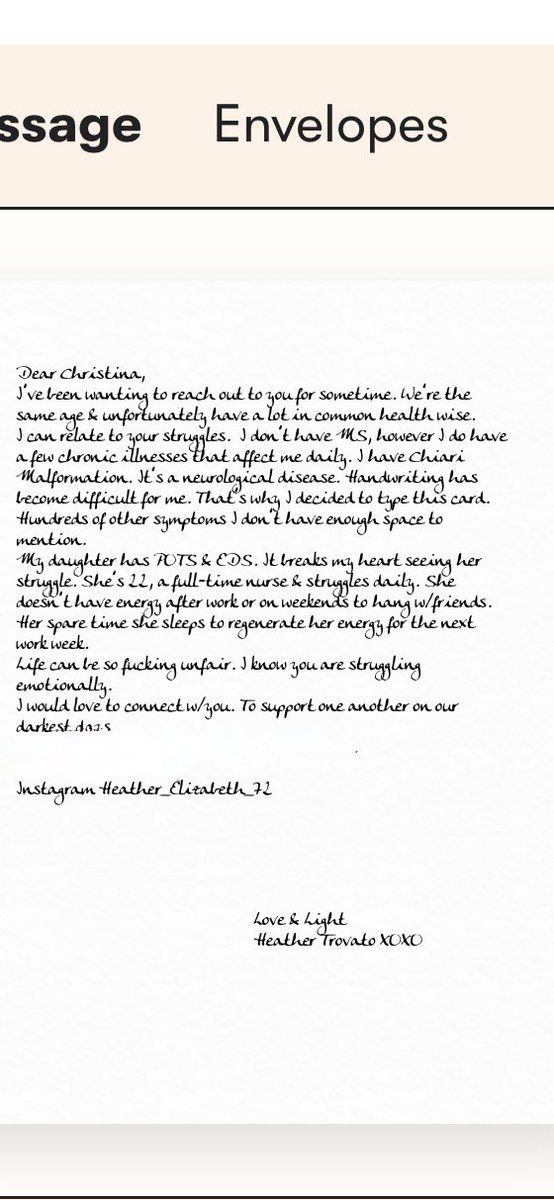 ssage Envelopes
Dear Christina,
I've been wanting to reach out to you for sometime. We're the
same age & unfortunately have a lot in common health wise.
I can relate to your struggles. I don't have MS, however I do have
a few chronic illnesses that affect me daily. I have Chiari
Malformation. It's a neurological disease. Handwriting has
become difficult for me. That's why I decided to type this card.
Hundreds of other symptoms I don't have enough space to
mention.
My daughter has POTS & EDS. It breaks my heart seeing her
struggle. She's 22, a full-time nurse & struggles daily. She
doesn't have energy after work or on weekends to hang w/friends.
Her spare time she sleeps to regenerate her energy for the next
work week.
Life can be so fucking unfair. I know you are struggling
emotionally.
I would love to connect w/you. To support one another on our
darkest days
Instagram Heather_Elizabeth_72
Love & Light
Heather Trovato XOXO